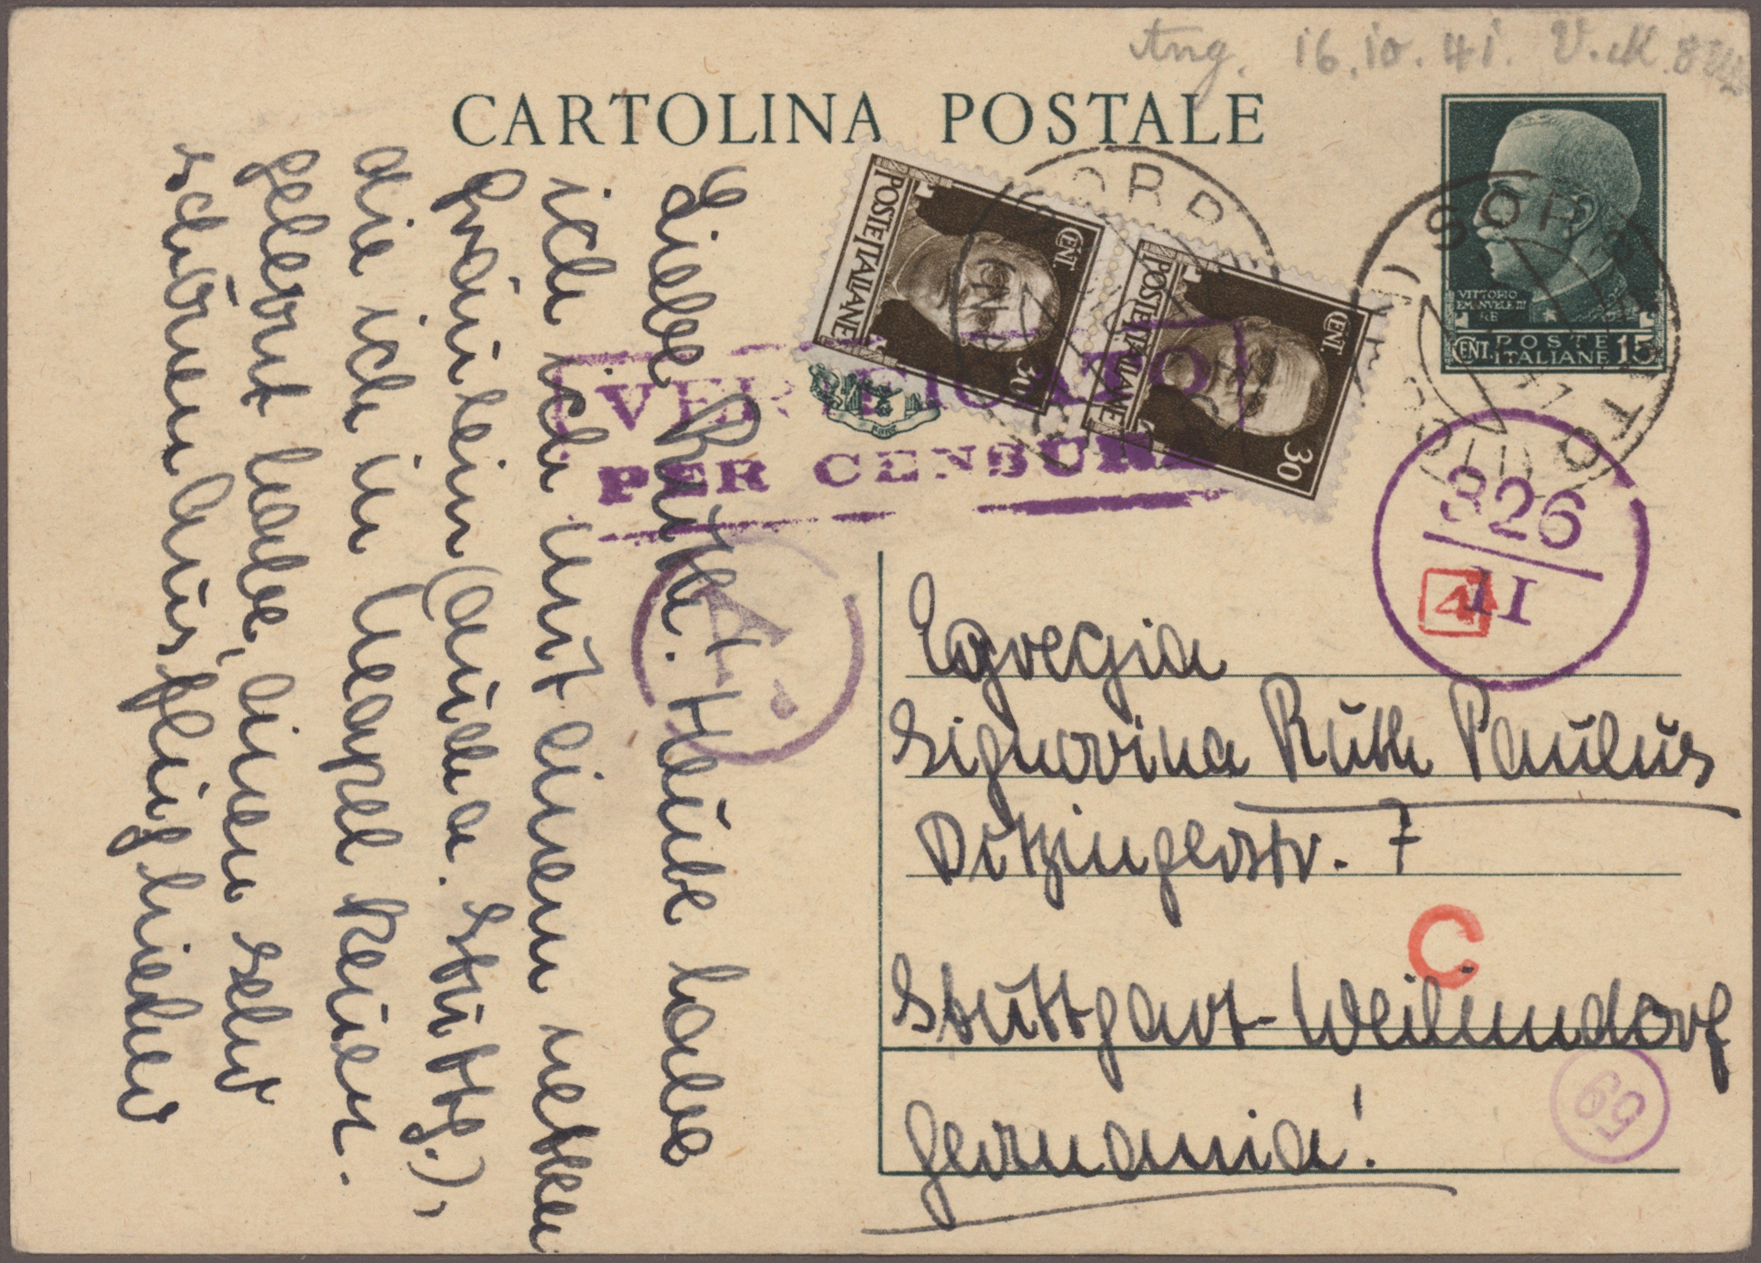 Ang. 16.10.41. V.M.
CARTOLINA POSTALE
VITTORIO
EMANVELE III
RE
CENT. POSTE
ITALIANE 15
POSTE ITALIANE
CENT. 30
POSTE ITALIANE
CENT. 30
SORR
SORR TO
VERIFICATO
PER CENSURA
A.
326
II
4
C
59
Egregia
Signorina Ruth Paulus
Ditzingerstr. 7
Stuttgart-Weilimdorf
Germania!
Liebe Ruth. Heute habe
ich mit einem netten
Fräulein (auch a. Stuttg.),
die ich in Neapel kennen
gelernt habe, einen sehr
schönen Ausflug hierher